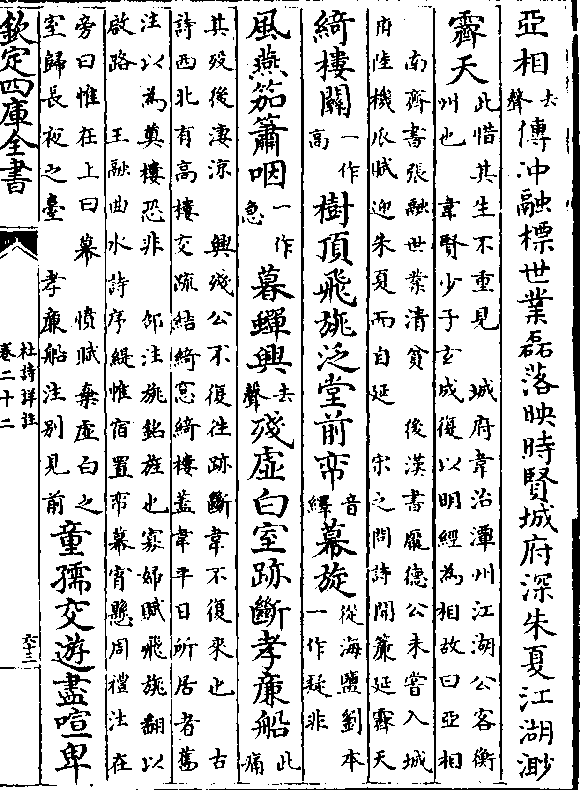 亞相去聲傳沖融標世業磊落映時賢城府深朱夏江湖渺
霽天
此惜其生不重見 城府韋治潭州江湖公客衡
州也 韋賢少子玄成復以明經為相故曰亞相
南齊書張融世業清貧 後漢書龐德公未嘗入城
府陸機瓜賦迎朱夏而自延 宋之問詩開簾延霽天
綺樓關一作高樹頂飛旐泛堂前帟音繹幕旋從海鹽劉本一作疑非
風燕笳簫咽一作急暮蟬興去聲殘虛白室跡斷孝廉船此痛
其歿後淒涼 興殘公不復往跡斷韋不復來也 古
詩西北有高樓交疏結綺窓綺樓蓋韋平日所居者舊
注以為奠樓恐非 邵注旐銘旌也寡婦賦飛旐翩以
啟路 王融曲水詩序緹帷宿置帟幕宵懸周禮注在
旁曰帷在上曰幕 憤賦棄虛白之
室歸長夜之臺 孝廉船注別見前
童孺交遊盡喧卑
欽定四庫全書
杜詩詳註
卷二十二